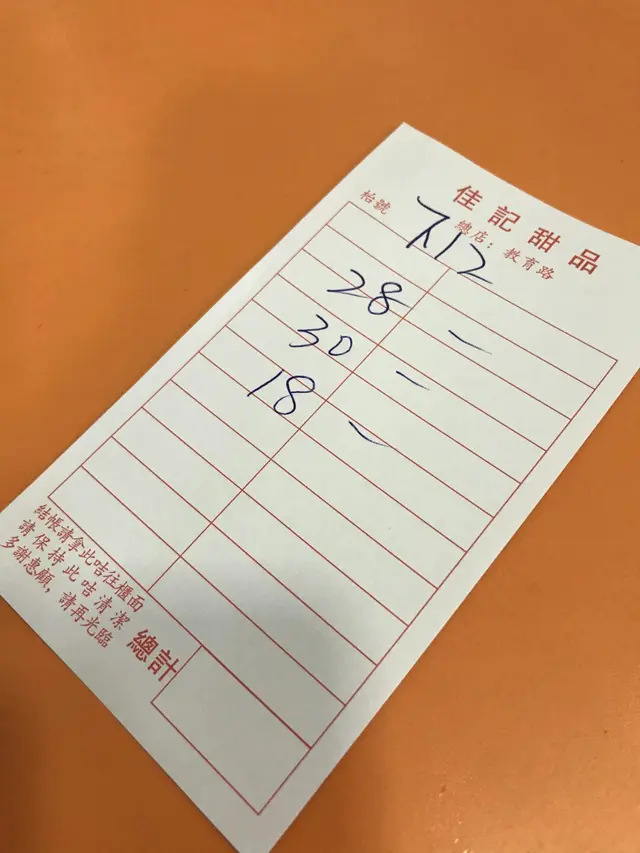 佳記甜品
總店：教育路
枱號
28 一
30 一
18 一
總計
結帳請拿此咭往櫃面
請保持此咭清潔
多謝惠顧，請再光臨